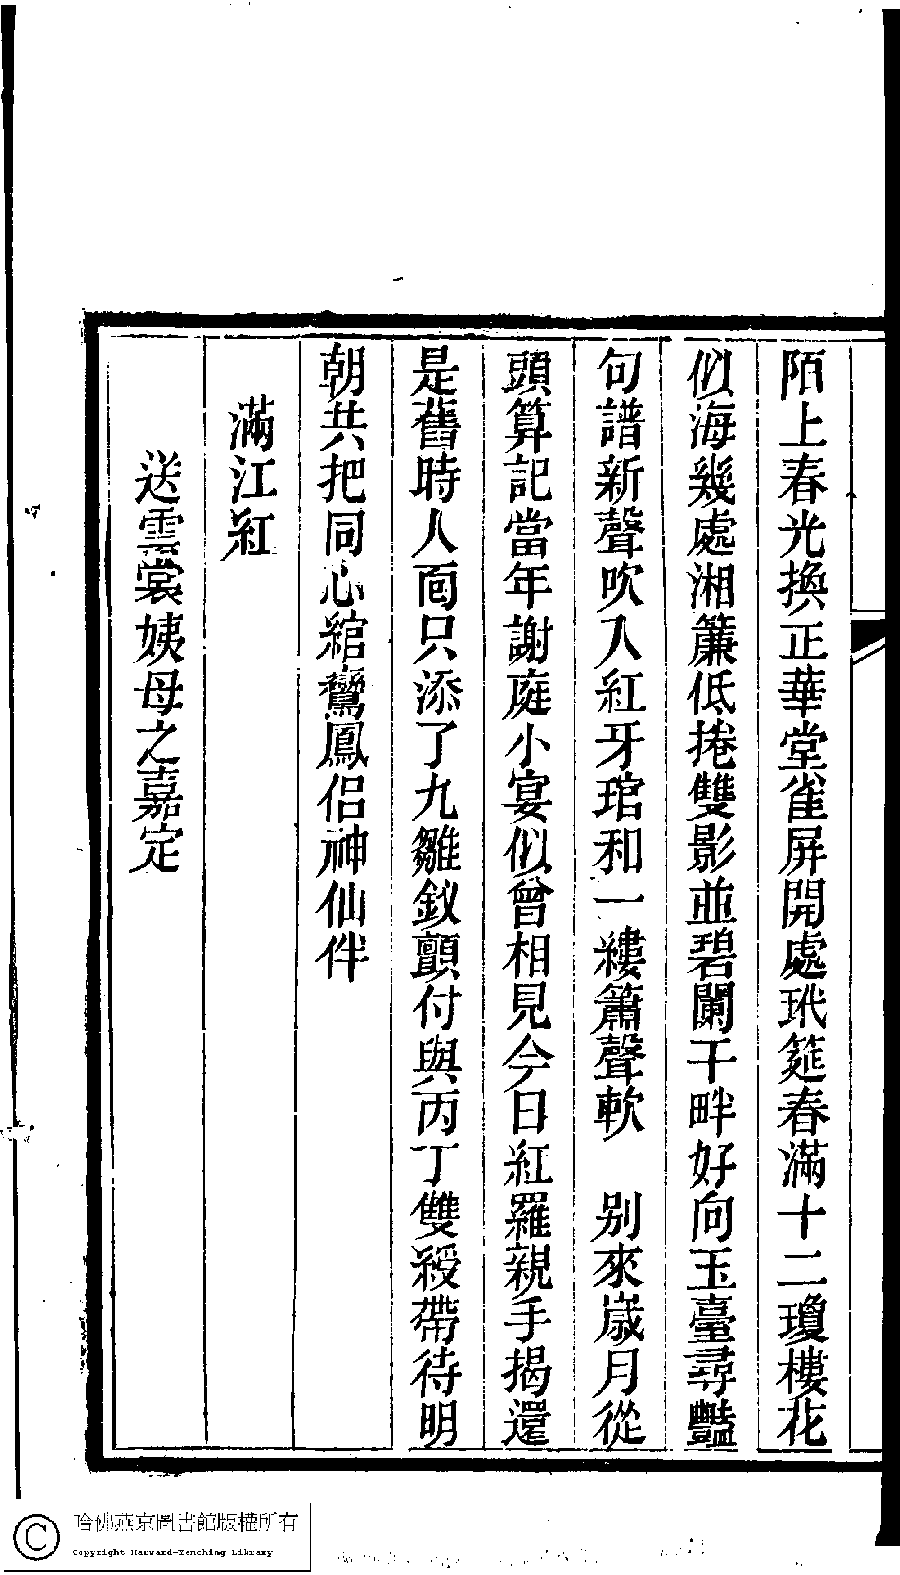 陌上春光換正華堂雀屏開處玳筵春滿十二瓊樓花
似海幾處湘簾低捲雙影並碧闌干畔好向玉臺尋豔
句譜新聲吹入紅牙琯和一縷簫聲軟　別來歲月從
頭算記當年謝庭小宴似曾相見今日紅羅親手揭還
是舊時人面只添了九雛釵顫付與丙丁雙綬帶待明
朝共把同心綰鸞鳳侶神仙伴
滿江紅
送雲裳姨母之嘉定
哈佛燕京圖書館版權所有
Copyright Harvard-Yenching Library